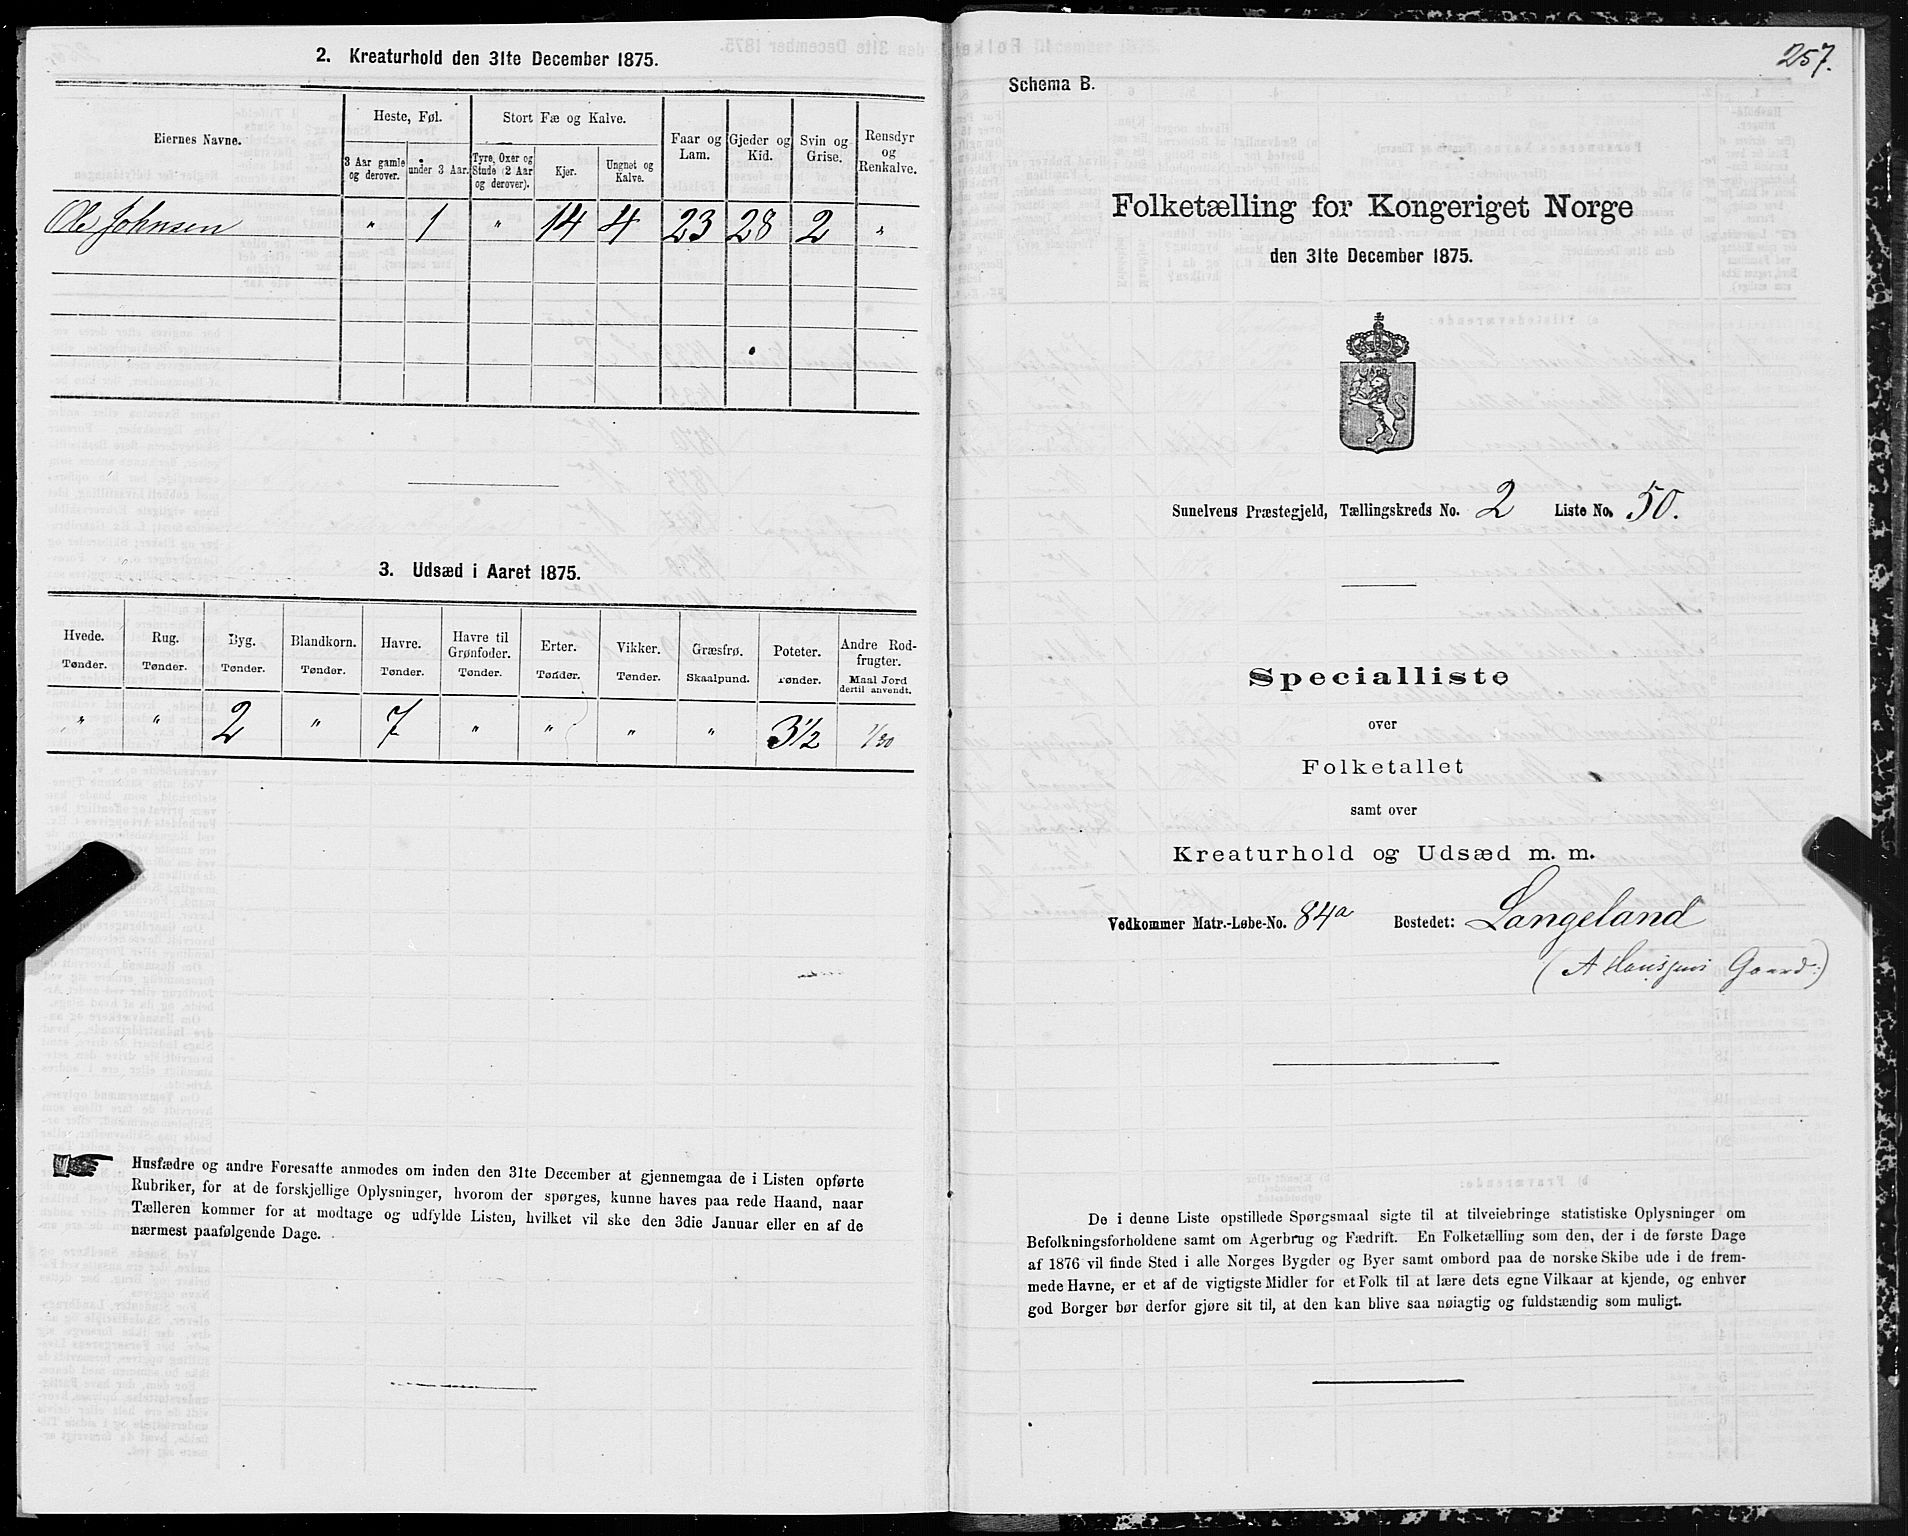 2. Kreaturhold den 31te December 1875.
Eiernes Navne.
Heste, Føl.
3 Aar gamle og derover.
under 3 Aar.
Stort Fæ og Kalve.
Tyre, Oxer og Stude (2 Aar og derover).
Kjør.
Ungnøt og Kalve.
Faar og Lam.
Gjeder og Kid.
Svin og Grise.
Rensdyr og Renkalve.
Ole Johnsen " 1 " 14 4 23 28 2 "
3. Udsæd i Aaret 1875.
Hvede. Rug. Byg. Blandkorn. Havre. Havre til Grønfoder. Erter. Vikker. Græsfrø. Poteter. Andre Rodfrugter.
Tønder. Tønder. Tønder. Tønder. Tønder. Tønder. Tønder. Tønder. Skaalpund. Tønder. Maal Jord dertil anvendt.
" " 2 " 7 " " " " 3½ 1/20
Husfædre og andre Foresatte anmodes om inden den 31te December at gjennemgaa de i Listen opførte
Rubriker, for at de forskjellige Oplysninger, hvorom der spørges, kunne haves paa rede Haand, naar
Tælleren kommer for at modtage og udfylde Listen, hvilket vil ske den 3die Januar eller en af de
nærmest paafølgende Dage.
257.
Schema B.
Folketælling for Kongeriget Norge
den 31te December 1875.
Sunelvens Præstegjeld, Tællingskreds No. 2 Liste No. 50.
Specialliste
over
Folketallet
samt over
Kreaturhold og Udsæd m. m.
Vedkommer Matr.-Løbe-No. 84a Bostedet: Langeland
(A Hansens Gaard:)
De i denne Liste opstillede Spørgsmaal sigte til at tilveiebringe statistiske Oplysninger om
Befolkningsforholdene samt om Agerbrug og Fædrift. En Folketælling som den, der i de første Dage
af 1876 vil finde Sted i alle Norges Bygder og Byer samt ombord paa de norske Skibe ude i de frem-
mede Havne, er et af de vigtigste Midler for et Folk til at lære dets egne Vilkaar at kjende, og enhver
god Borger bør derfor gjøre sit til, at den kan blive saa nøiagtig og fuldstændig som muligt.